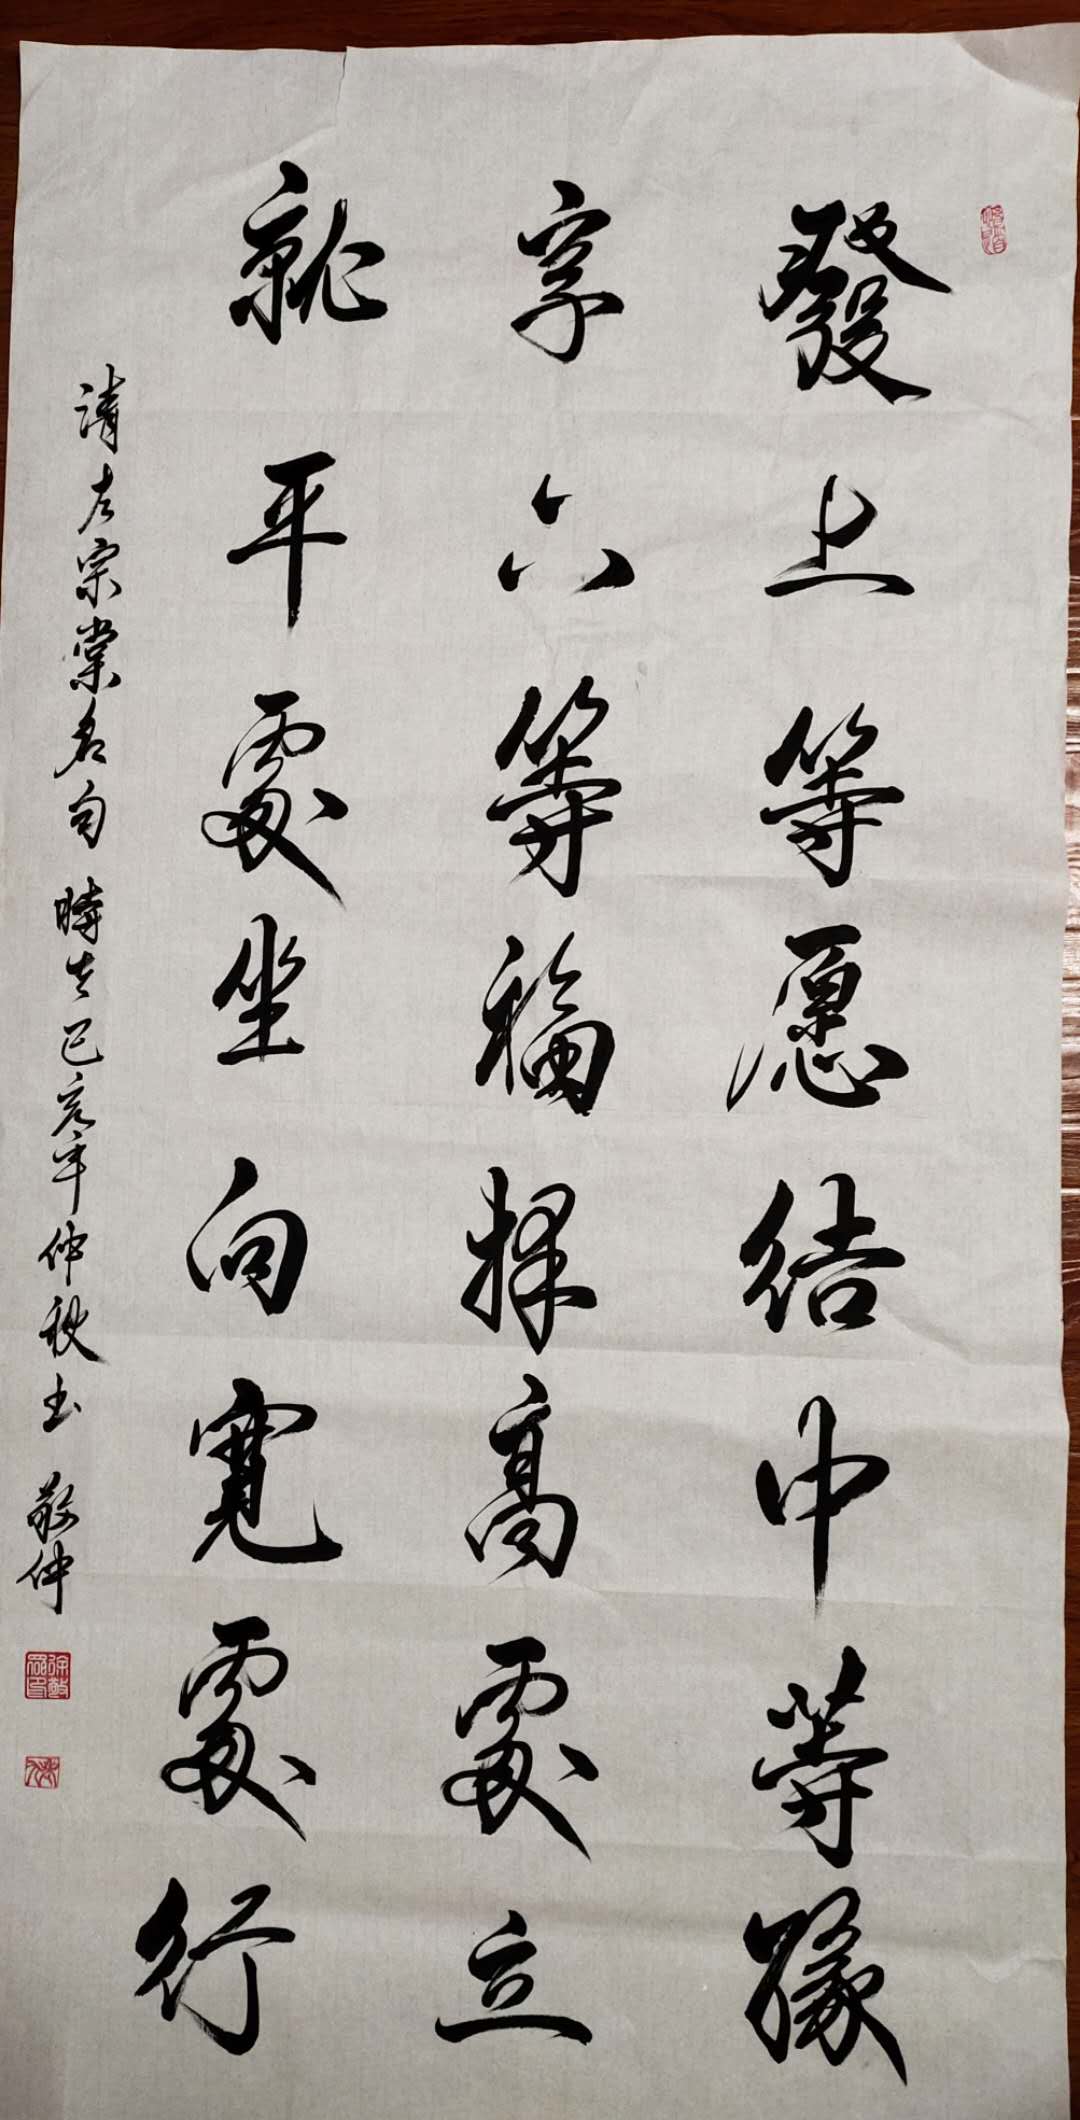 發上等愿结中等緣
享下等福择高處立
就平處坐向寬處行
清左宗棠名句 時在己亥年仲秋书 敬仲